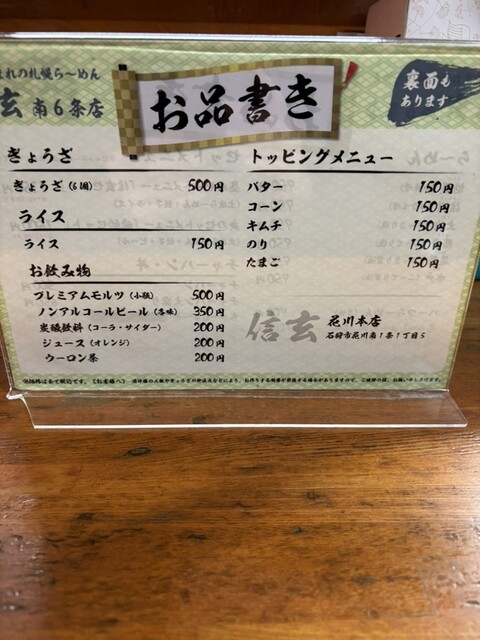 れの札幌ら〜めん
玄 南6条店
お品書き
裏面も
あります
ぎょうざ
ぎょうざ(6個) 500円
ライス
ライス 150円
お飲み物
プレミアムモルツ(小瓶) 500円
ノンアルコールビール(各味) 350円
炭酸飲料(コーラ・サイダー) 200円
ジュース(オレンジ) 200円
ウーロン茶 200円
トッピングメニュー
バター 150円
コーン 150円
キムチ 150円
のり 150円
たまご 150円
信玄 花川本店
石狩市花川南1条1丁目5